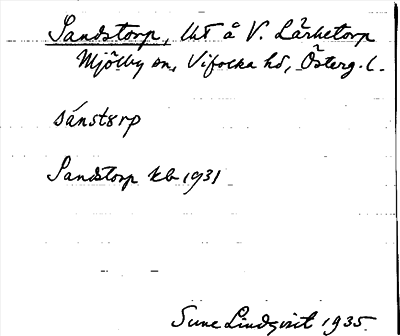 Sandstorp, lht å V. Lärketorp
Mjölby sn, Vifolka hd, Österg. l.
sánstɤrp
Sandstorp kb 1931
Sune Lindqvist 1935